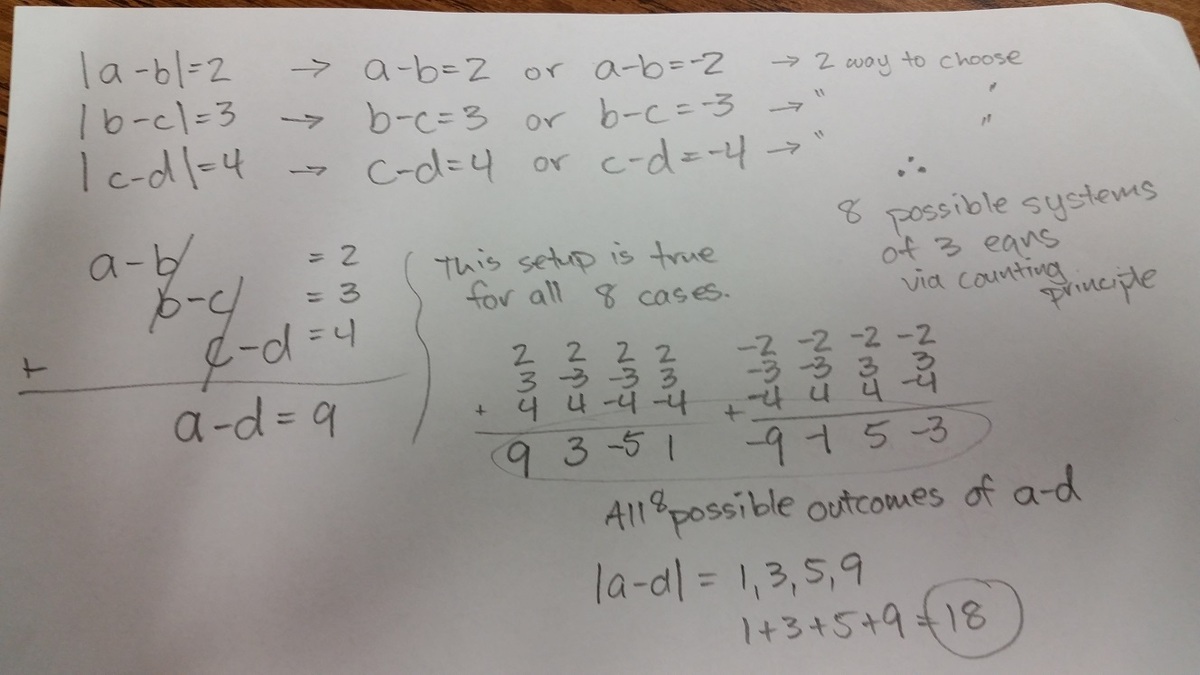 |a-b|=2 → a-b=2 or a-b=-2 → 2 way to choose
|b-c|=3 → b-c=3 or b-c=-3 → " "
|c-d|=4 → c-d=4 or c-d=-4 → " "
∴
8 possible systems
of 3 eqns
via counting
principle
a-b = 2
b-c = 3
+ c-d = 4
a-d = 9
This setup is true
for all 8 cases.
2 2 2 2 -2 -2 -2 -2
3 -3 -3 3 -3 -3 3 3
+ 4 4 -4 -4 + -4 4 4 -4
9 3 -5 1 -9 -1 5 -3
All 8 possible outcomes of a-d
|a-d| = 1,3,5,9
1+3+5+9=18